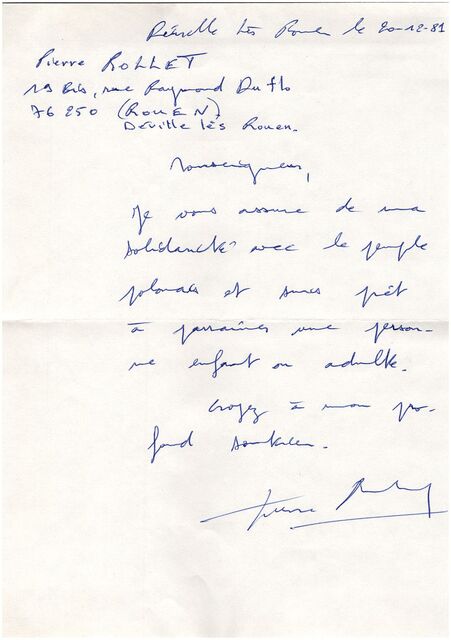 Déville lès Rouen le 20-12-81
Pierre ROLLET
19 Bis, rue Raymond Duflo
76 250 (ROUEN)
Déville lès Rouen.
Monseigneur,
Je vous assure de ma
solidarité avec le peuple
polonais et suis prêt
à parrainer une person-
ne enfant ou adulte.
Croyez à mon pro-
fond soutien.
Pierre Rollet